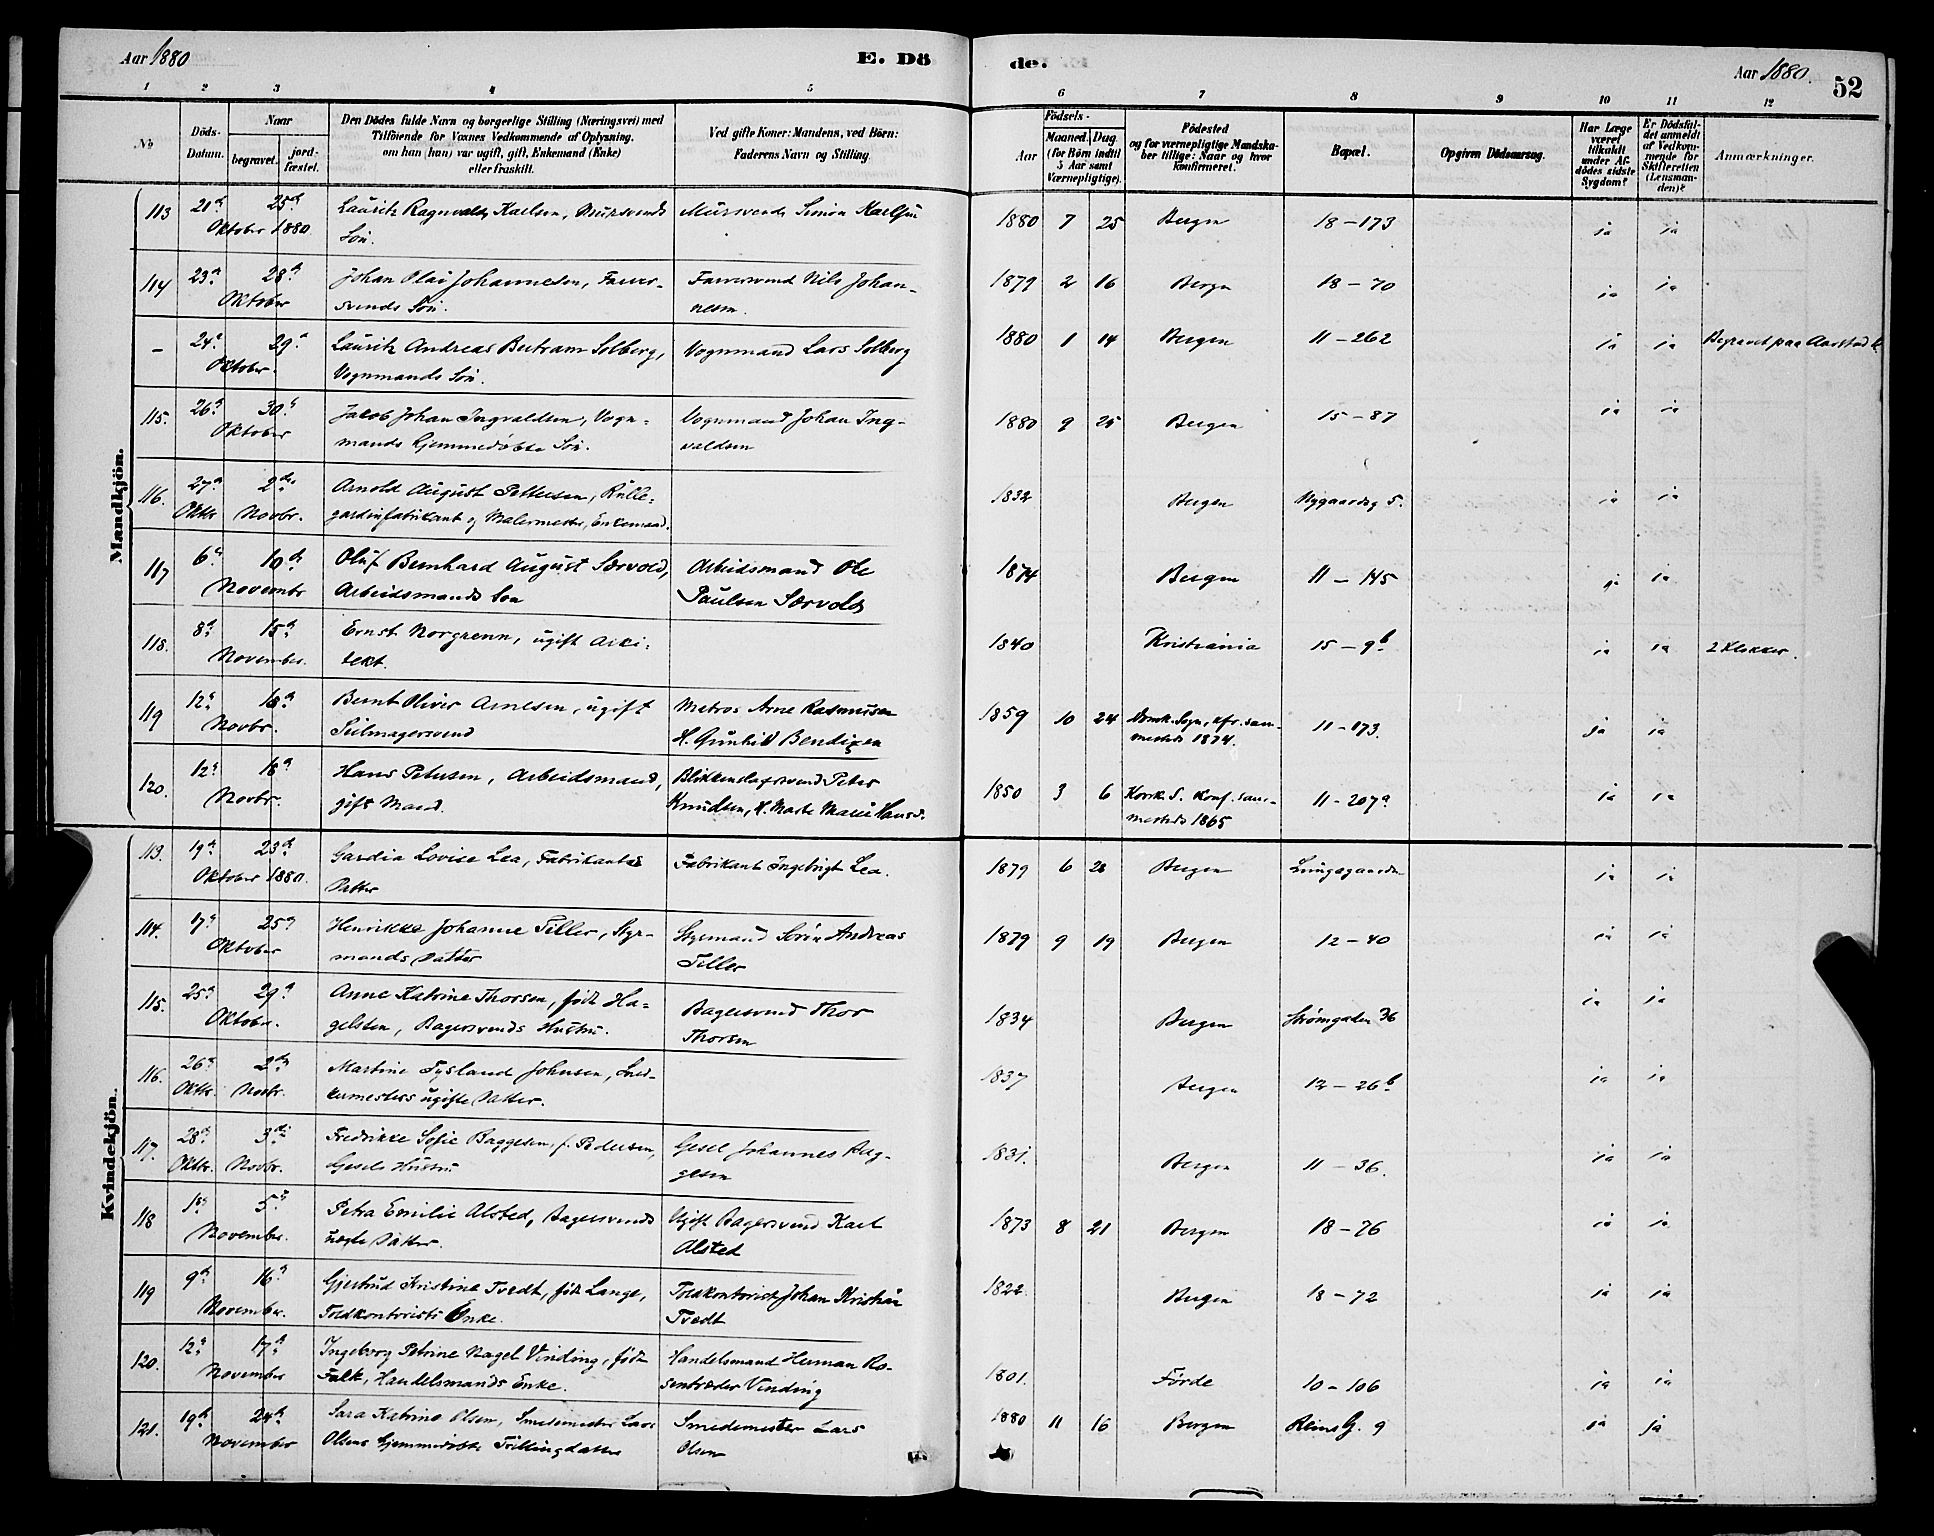 Aar 1880 E. Dö
de. Aar 1880. 52
1 2 3 4 5 6 7 8 9 10 11 12
No
Döds-Datum.
Naar
begravet.
jord-fæstet.
Den Dödes fulde Navn og borgerlige Stilling (Næringsvei) med
Tilföiende for Voxnes Vedkommende af Oplysning,
om han (hun) var ugift, gift, Enkemand (Enke)
eller fraskilt.
Ved gifte Koner: Mandens, ved Börn:
Faderens Navn og Stilling.
Födsels-
Aar
Maaned. Dag
(for Börn indtil
5 Aar samt
Værnepligtige).
Födested
og for værnepligtige Mandska-
ber tillige: Naar og hvor
konfirmeret.
Bopæl.
Opgiven Dödsaarsag.
Har Læge
været
tilkaldt
under Af-
dödes sidste
Sygdom?
Er Dödsfal-
det anmeldt
af Vedkom-
mende for
Skifteretten
(Lensman-
den)?
Anmærkninger.
Mandkjön.
113 21de 25de Lauritz Ragnvald Karlsen, Mursvends Mursvend Simon Karlsen 1880 7 25 Bergen 18-173 ja ja
Oktober 1880. Sön.
114 23de 28de Johan Olai Johannesen, Farver- Farversvend Nils Johan- 1879 2 16 Bergen 18-70 ja ja
Oktober svends Sön. nesen.
- 24de 29de Lauritz Andreas Bertram Solberg, Vognmand Lars Solberg 1880 1 14 Bergen 11-262 ja ja Begravet paa Aarstad k.
Oktober. Vognmands Sön.
115. 26de 30te Jakob Johan Ingvaldsen, Vogn- Vognmand Johan Ing- 1880 9 25 Bergen 15-87 ja ja
Oktober mands hjemmedøbte Sön. valdsen
116. 27de 2den Arnold August Pettersen, Rulle- 1832 Bergen Nygaardsg 5. ja ja
Oktbr Novbr. gardinfabrikant og Malermester, Enkemand.
117 6te 10de Oluf Bernhard August Sørvold, Arbeidsmand Ole 1874 Bergen 11-145 ja ja
Novembr Arbeidsmands Søn Paulsen Sørvold
118. 8de 15de Ernst Norgrenn, ugift Arki- 1840 Kristiania 15-9b ja ja 2 Klokker.
November. tekt.
119 12te 18de Bernt Oliver Arnesen, ugift Matros Arne Rasmusen 1859 10 24 Domk. Sogn, kfr. sam- 11-173. ja ja
Novbr. Seilmagersvend H. Gunhild Bendixen mesteds 1874.
120. 12te 18de Hans Petersen, Arbeidsmand, Blikkenslagersvend Peter 1850 3 6 Korsk. S. konf. sam- 11-207a ja ja
Novbr. gift Mand. Knudsen, H. Marte Marie Hansd. mesteds 1865
Kvindekjön.
113. 19de 23de Gardia Lovise Lea, Fabrikants Fabrikant Ingebrigt Lea. 1879 6 28 Bergen Lungegaarden ja ja
Oktober 1880. Datter
114. 17de 25de Henrikke Johanne Teller, Styr- Styrmand Sören Andreas 1879 9 19 Bergen 12-40 ja ja
Oktober mands Datter Teller
115. 25de 29de Anne Katrine Thorsen, født Ha- Bagersvend Thor 1834 Bergen Strømgaden 36 ja ja
Oktober. gelsten, Bagersvends Hustru. Thorsen
116. 26de 2den Martine Tysland Johnsen, Sned- 1837 Bergen 12-26b ja ja
Oktbr. Novbr. kermesters ugifte Datter.
117. 28de 3die Fredrikke Sofie Baggesen, f. Pedersen, Gesel Johannes Bag- 1831. Bergen 11-36. ja ja
Oktbr. Novbr. Gesels Hustru gesen
118 1ste 5te Petra Emilie Alsted, Bagersvends Ugift Bagersvend Karl 1873 8 21 Bergen 18-76 ja ja
November. uægte Datter. Alsted
119 9de 16de Gjertrud Kristine Tvedt, født Lange, Toldkontorist Johan Kristian 1822. Bergen 18-72 ja ja
November. Toldkontorists Enke. Tvedt
120. 12te 17de Ingeborg Petrine Nagel Vinding, født Handelsmand Herman Ro- 1801. Førde 10-106 ja ja
November Falk, Handelsmands Enke. sentræder Vinding
121. 19de 24de Sara Katrine Olsen, Smedemester Lars Smedemester Lars 1880 11 16 Bergen ReinsG. 9 ja ja
November Olsens hjemmedøbte Tvillingdatter Olsen